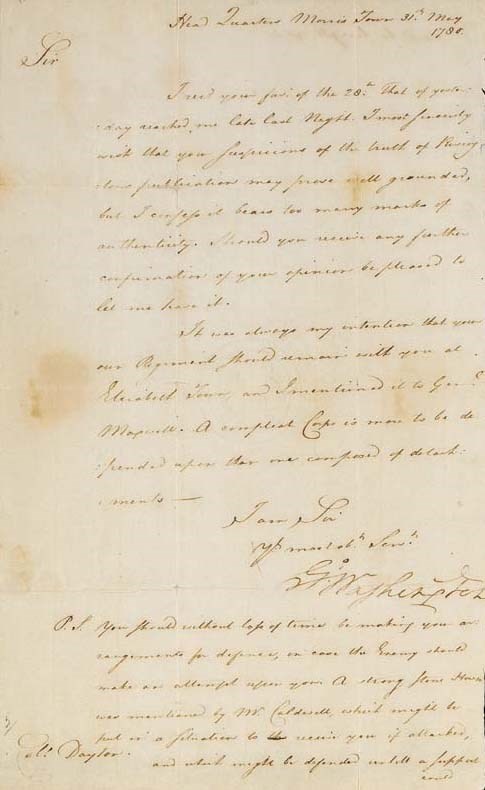 Head Quarters Morris Town 31st May
1780.
Sir
I recd your favr. of the 28th. That of yester-
:day reached me late last Night. I most sincerely
wish that your suspicions of the truth of Riving-
:tons publication may prove well grounded,
but I confess it bears too many marks of
authenticity. Should you receive any further
confirmation of your opinion be pleased to
let me have it.
It was always my intention that your
own Regiment should remain with you at
Elizabeth Town, and I mentioned it to Genl.
Maxwell. A compleat Corps is more to be de
:pended upon than one composed of detach
:ments —
I am Sir
Yr most obt. Servt.
Go. Washington
P.S. You should without loss of time be making your ar
rangements for defence, in case the Enemy should
make an attempt upon you. A strong stone House
was mentioned by Mr. Caldwell, which might be
put in a situation to receive you if attacked,
Colo. Dayton.
and which might be defended untill a support
could